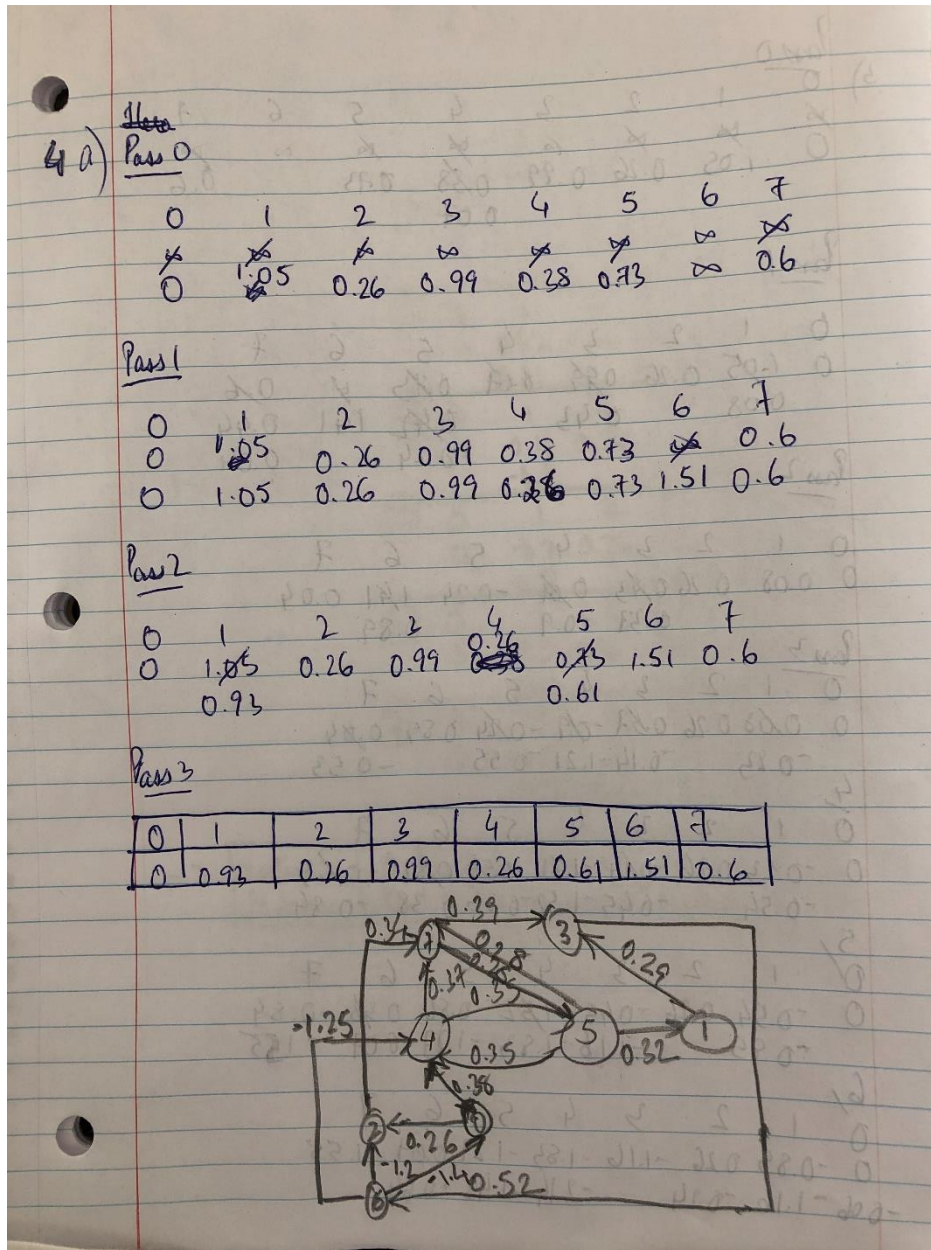 4 a) Pass 0
0 1 2 3 4 5 6 7
∞ ∞ ∞ ∞ ∞ ∞ ∞ ∞
0 1.05 0.26 0.99 0.38 0.73 ∞ 0.6
Pass 1
0 1 2 3 4 5 6 7
0 1.05 0.26 0.99 0.38 0.73 ∞ 0.6
0 1.05 0.26 0.99 0.26 0.73 1.51 0.6
Pass 2
0 1 2 3 4 5 6 7
0.26
0 1.05 0.26 0.99 0.38 0.73 1.51 0.6
0.93 0.61
Pass 3
0 1 2 3 4 5 6 7
0 0.93 0.26 0.99 0.26 0.61 1.51 0.6
0.39
0.34 7 3
0.28 0.29
0.37 0.35
-1.25 4 5 1
0.35 0.32
0.38
2 0.26
-1.2 -1.4 0.52
6